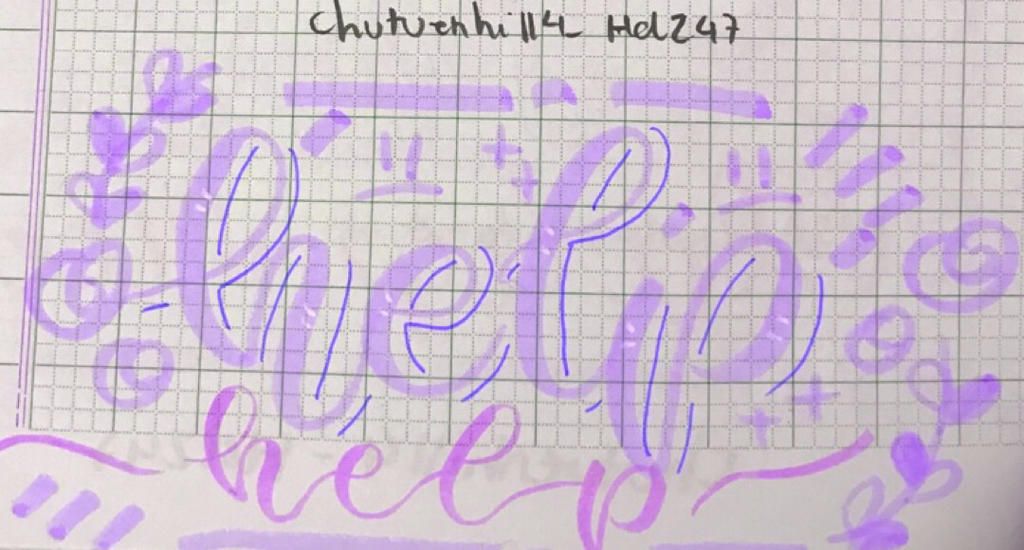 chutuenhi114 Hd247
help
help